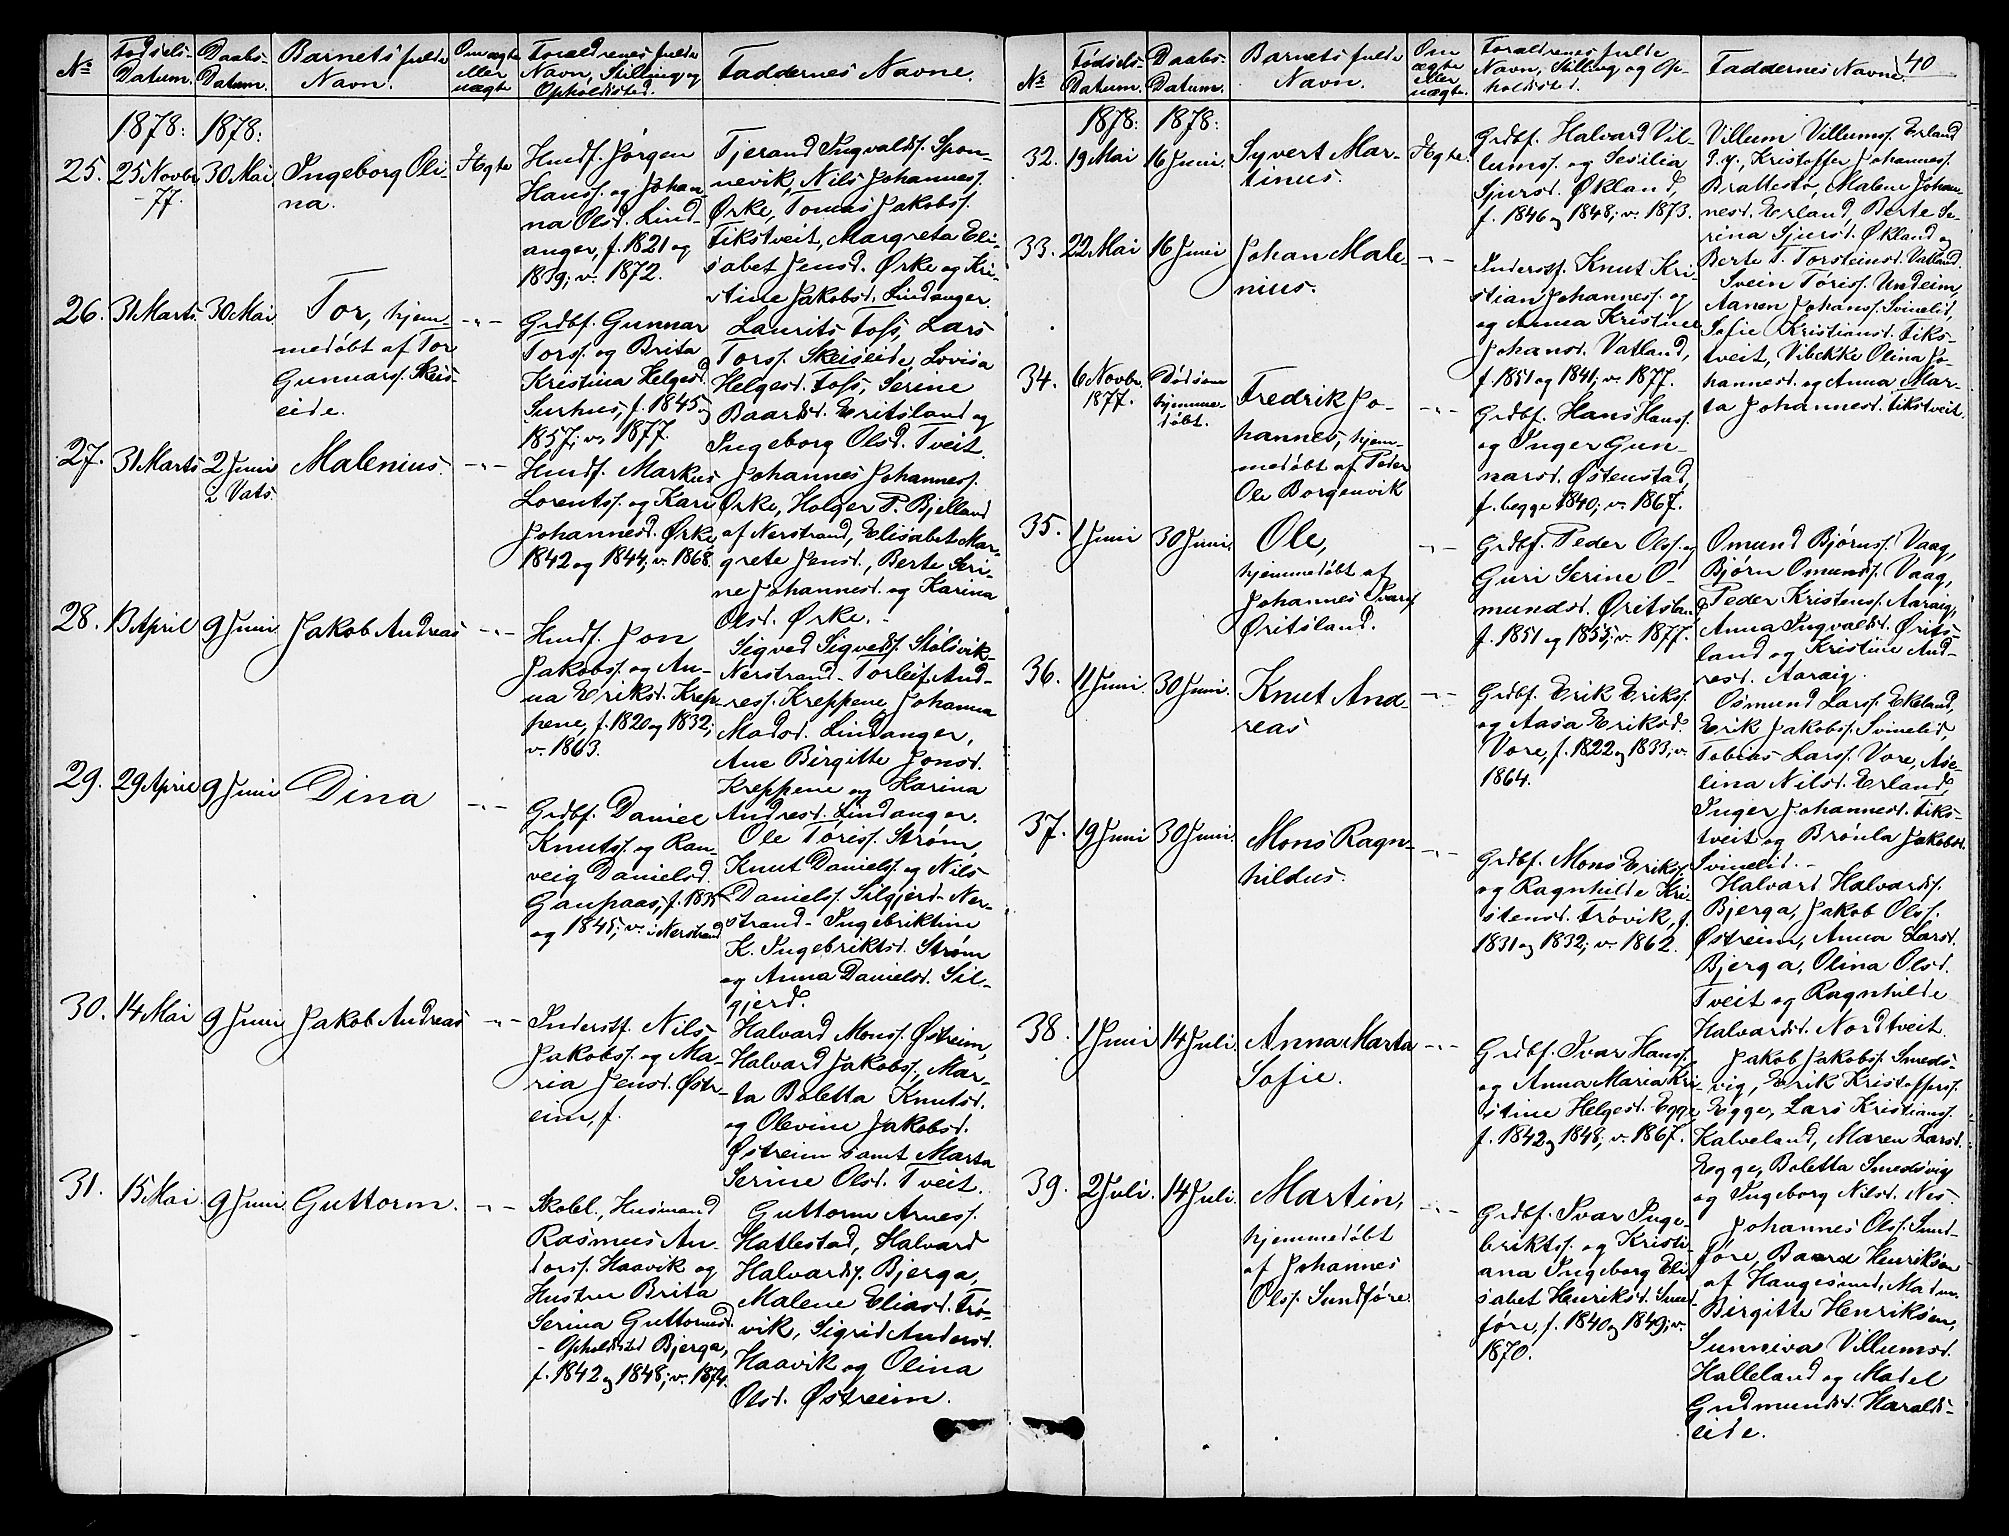 40
No Fødsels-Datum. Daabs-Datum. Barnets fulde Navn. Om ægte eller uægte Forældrenes fulde Navn, Stilling og Opholdssted. Faddernes Navne.
1878: 1878:
25. 25 Novbr -77. 30 Mai Ingeborg Oli-
na.
Ægte
Husmf. Jørgen
Hanss. og Johan-
na Olsd. Lind-
anger, f. 1821 og
1839; v. 1872.
Tjerand Ingvaldss. Spon-
nevik, Nils Johanness.
Ørke, Tomas Jakobss.
Tikstveit, Margreta Eli-
sabet Jensd. Ørke og Kri-
stine Jakobsd. Lindanger.
26. 31 Marts. 30 Mai Tor, hjem-
medøbt af Tor
Gunnars. Skeis-
eide.
-"-
Grdbf. Gunnar
Torss. og Brita
Kristina Helgesd.
Surhus, f. 1845 og
1857; v. 1877.
Laurits Foss, Lars
Torss. Skeiseide, Lovisa
Helgesd. Foss, Serine
Baardsd. Eritsland og
Ingeborg Olsd. Tveit.
27. 31 Marts 2 Juni
i Vats
Malenius.
-"-
Husmf. Markus
Lorentss. og Kari
Johannesd. Ørke,
1842 og 1844; v. 1868.
Johannes Johanness.
Ørke, Holger P. Bjelland
af Nerstrand, Elisabet Mar-
grete Jensd., Berte Seri-
ne Johannesd. og Karina
Olsd. Ørke. -
28. 13 April 9 Juni Jakob Andreas
-"-
Husmf. Jon
Jakobss. og An-
na Eriksd. Krep-
pene, f. 1820 og 1832;
v. 1863.
Sigved Sigvedss. Stølsvik-
Nerstrand- Torleif And-
ress. Kreppene, Johanna
Madsd. Lindanger,
Ane Birgitte Jonsd.
Kreppene og Karina
Andresd. Lindanger.
29. 29 April 9 Juni Dina
-"-
Grdbf. Daniel
Knutss. og Ran-
veig Danielsd.
Gaupaas, f. 1835
og 1845; v. i Nerstrand
Ole Tøriss. Strøm,
Knut Danielss. og Nils
Danielss. Silgjerd- Ner-
strand- Ingebriktine
K. Ingebriktsd. Strøm
og Anna Danielsd. Sil-
gjerd.
30. 14 Mai 9 Juni Jakob Andreas
-"-
Inderstf. Nils
Jakobss. og Ma-
ria Jensd. Østr-
eim, f.
Halvard Monss. Østreim,
Halvard Jakobss., Mar-
ta Boletta Knutsd.
og Olevine Jakobsd.
Østreim samt Marta
Serine Olsd. Tveit.
31. 15 Mai 9 Juni Guttorm.
-"-
Skobl., Husmand
Rasmus An-
dorss. Haavik og
Hustru Brita
Serina Guttormsd.
- Opholdsted Bjerga,
f. 1842 og 1848; v. 1874.
Guttorm Arness.
Hatlestad, Halvard
Halvardss. Bjerga,
Malene Eliasd. Trø-
vik, Sigrid Andersd.
Haavik og Olina
Olsd. Østreim.
No Fødsels-Datum. Daabs-Datum. Barnets fulde Navn. Om ægte eller uægte. Forældrenes fulde Navn, Stilling og Opholdssted. Faddernes Navne.
1878: 1878:
32. 19 Mai 16 Juni Syvert Mar-
tinus.
Ægte
Grdbf. Halvard Vil-
lumss. og Sesilia
Sjursd. Økland,
f. 1846 og 1848; v. 1873.
Villum Villumss. Erland
g. y., Kristoffer Johanness.
Brattestø, Malene Johan-
nesd. Erland, Berte Se-
rina Sjursd. Økland og
Berte T. Torsteinsd. Vatland.
33. 22 Mai 16 Juni Johan Male-
nius.
-"-
Inderstf. Knut Kri-
stian Johanness. og
og Anna Kristine
Johansd. Vatland,
f. 1851 og 1841; v. 1877.
Svein Tøriss. Undeim,
Aanen Johanss. Svinelid,
Sofie Kristiansd. Tiks-
tveit, Vibekke Olina Jo-
hannesd. og Anna Mar-
ta Johannesd. Tikstveit.
34. 6 Novbr. 1877. Dødsom
hjemme-
døbt.
Fredrik Jo-
hannes, hjem-
medøbt af Peder
Ole Borgenvik
-"-
Grdbf. Hans Hanss.
og Inger Gun-
narsd. Østenstad,
f. begge 1840; v. 1867.
35. 1 Juni 30 Juni. Ole,
hjemmedøbt af
Johannes Ivarss.
Øritsland.
-"-
Grdbf. Peder Olss. og
Guri Serine O-
mundsd. Øritsland
f. 1851 og 1855; v. 1877.
Omund Bjørnss. Vaag,
Bjørn Omundss. Vaag,
Peder Kristenss. Aaraig,
Anna Ingvaldsd. Ørits-
land og Kristine And-
resd. Aaraig.
36. 11 Juni. 30 Juni. Knut And-
reas
-"-
Grdbf. Erik Erikss.
og Aasa Eriksd.
Vore, f. 1822 og 1833; v.
1864.
Osmund Larss. Ekeland,
Erik Jakobss. Svinelid,
Tobias Larss. Vore, Ase-
lina Nilsd. Erland,
Inger Johannesd. Tiks-
tveit og Brønla Jakobsd.
Svinelid. -
37. 19 Juni 30 Juni. Mons Ragn-
hildus.
-"-
Grdbf. Mons Erikss.
og Ragnhilde Kri-
stensd. Trøvik, f.
1831 og 1832; v. 1862.
Halvard Halvardss.
Bjerga, Jakob Olss.
Østreim, Anna Larsd.
Bjerga, Olina Olsd.
Tveit og Ragnhilde
Halvardsd. Nordtveit.
38. 1 Juni 14 Juli. Anna Marta
Sofie.
-"-
Grdbf. Ivar Hanss.
og Anna Maria Kri-
stine Helgesd. Egge
f. 1842 og 1848; v. 1867.
Jakob Jakobss. Smeds-
vig, Erik Kristofferss.
Egge, Lars Kristianss.
Kalveland, Maren Larsd.
Egge, Boletta Smedsvig
og Ingeborg Nilsd. Nes.
39. 2 Juli. 14 Juli. Martin,
hjemmedøbt
af Johannes
Olss. Sundføre.
-"-
Grdbf. Ivar Inge-
briktss. og Kristi-
ana Ingeborg Eli-
sabet Henriksd. Sund-
føre, f. 1840 og 1849; v.
1870.
Johannes Olss. Sund-
føre, Baard Henriksen
af Haugesund, Madam
Birgitte Henriksen,
Sunniva Villumsd.
Halleland og Madel
Gudmundsd. Haralds-
eide.